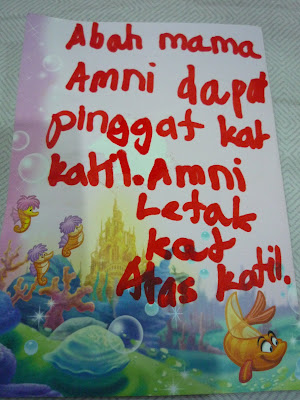 Abah mama
Amni dapat
pinggat kat
katil. Amni
Letak
kat
Atas katil.